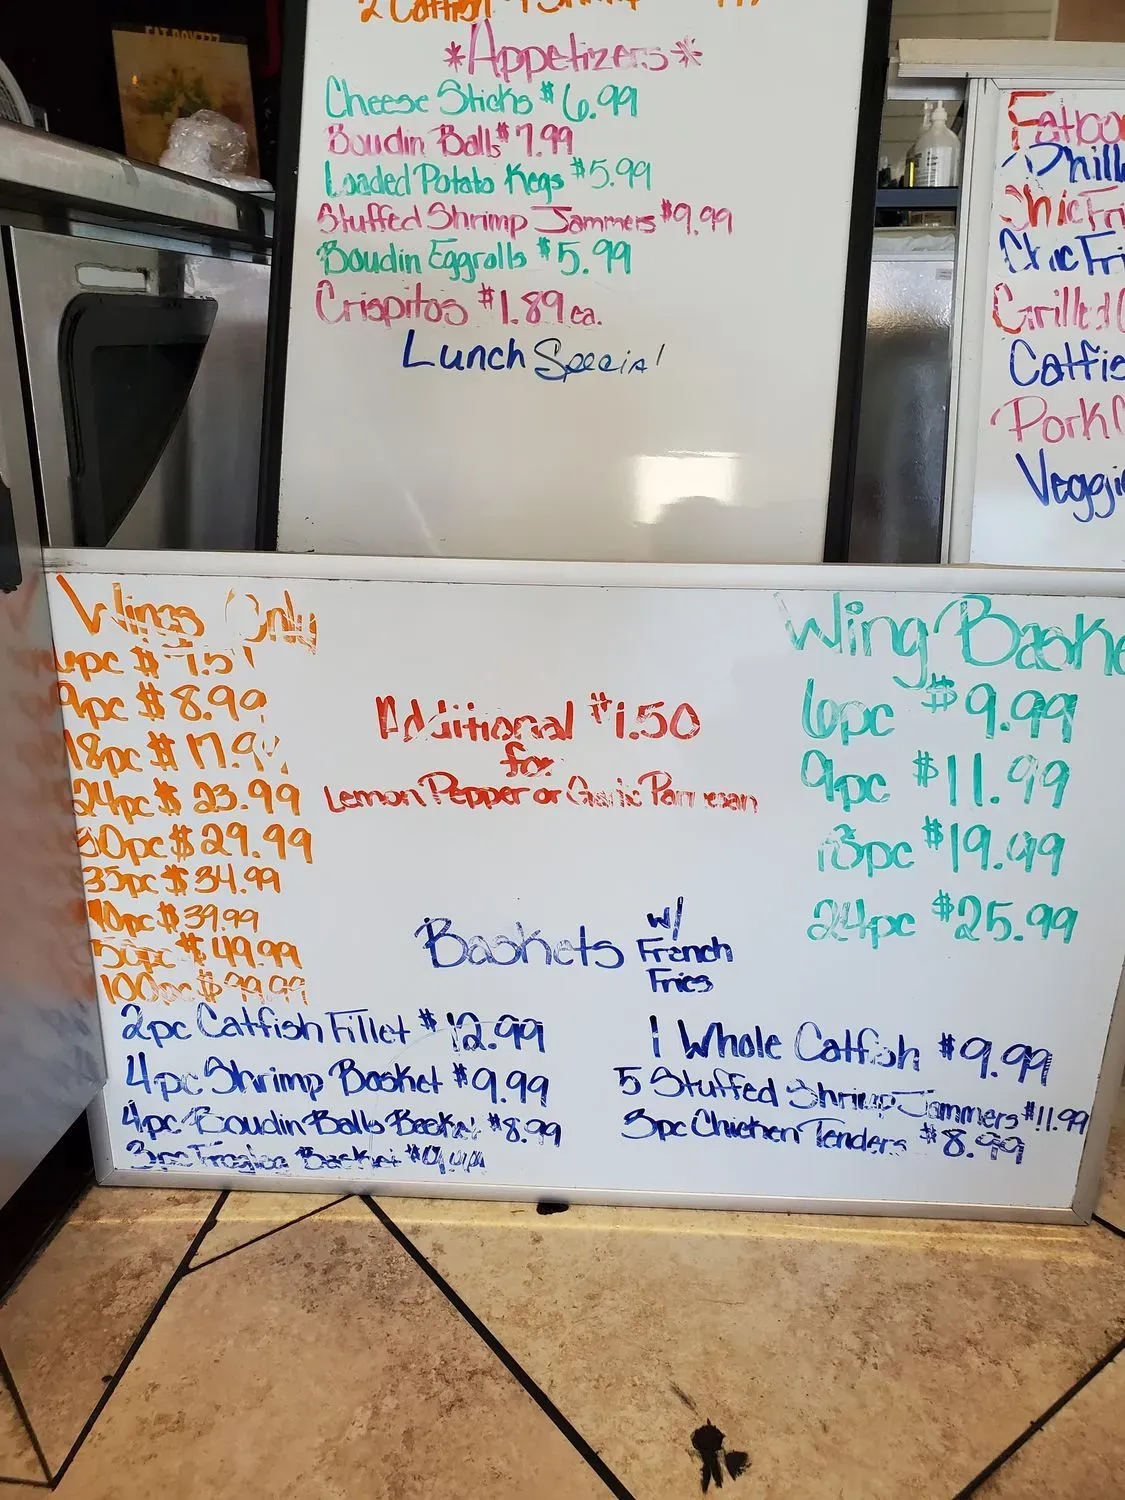 *Appetizers*
Cheese Sticks $6.99
Boudin Balls $7.99
Loaded Potato Kegs $5.99
Stuffed Shrimp Jammers $9.99
Boudin Eggrolls $5.99
Crispitos $1.89 ea.
Lunch Special
Fatboy
Philly
Chic Fri
Chic Fri
Grilled C
Catfis
Pork C
Veggi
Wings Only
6pc $7.5
9pc $8.99
18pc $17.99
24pc $23.99
30pc $29.99
35pc $34.99
40pc $39.99
50pc $49.99
100pc $99.99
Additional $1.50
for
Lemon Pepper or Garlic Parmesan
Wing Baske
6pc $9.99
9pc $11.99
18pc $19.99
24pc $25.99
Baskets w/
French
Fries
2pc Catfish Fillet $12.99
4pc Shrimp Basket $9.99
4pc Boudin Balls Basket $8.99
3pc Basket
1 Whole Catfish $9.99
5 Stuffed Shrimp Jammers $11.99
3pc Chicken Tenders $8.99